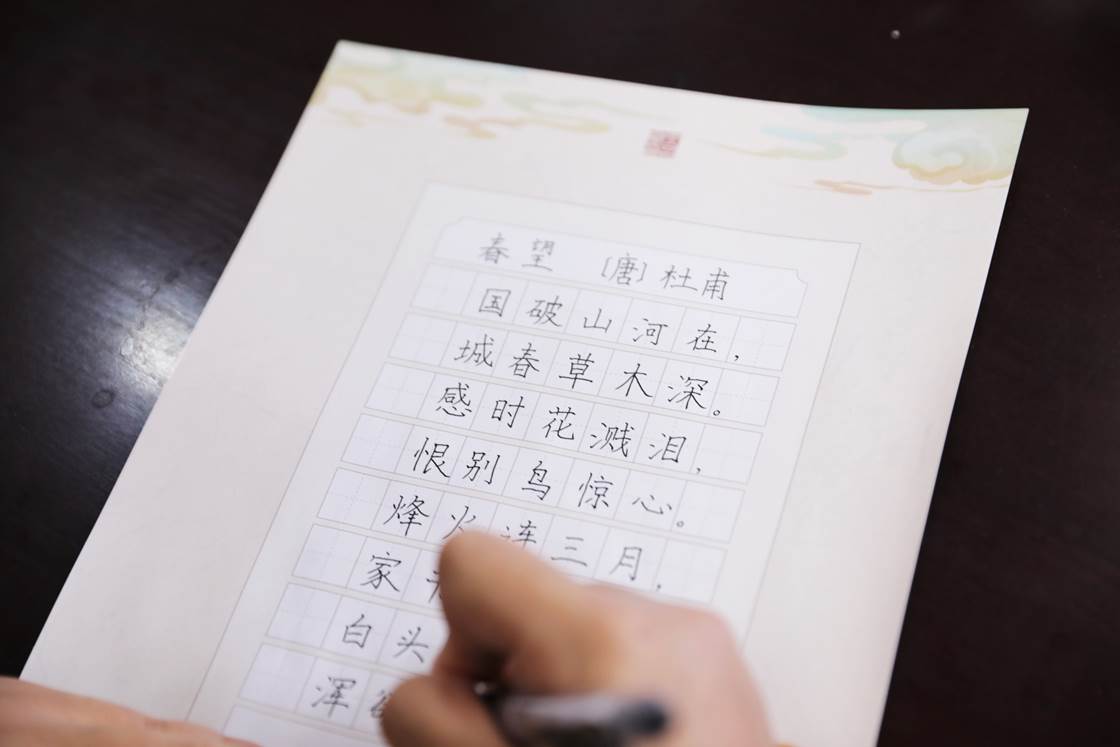 春望 [唐]杜甫
国破山河在,
城春草木深。
感时花溅泪,
恨别鸟惊心。
烽火连三月,
家
白头
浑